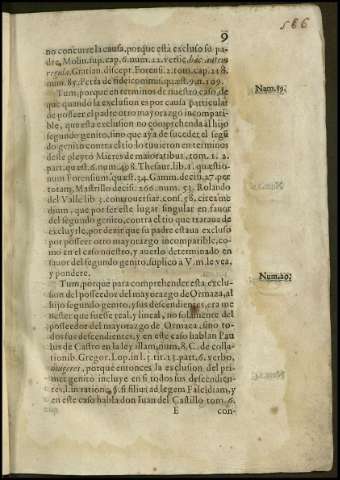 586
9
no concurre la causa, porque està excluso su pa-
dre, Molin. sup. cap. 6. num. 22. versic. hac autem
regula, Gratian. discept. Forens. 2. tom. cap. 218.
num. 85. Petra de fideicommis. quæst. 9. n. 109.
Num. 19.
Tum, porque en terminos de nuestro caso, de
que quando la exclusion es por causa particular
de posseer el padre otro mayorazgo incompati-
ble, que esta exclusion no comprehenda al hijo
segundo genito, sino que aya de suceder, el segũ
do genito contra el tio lo tuuieron en terminos
deste pleyto Mieres de maioratibus, tom. 1. 2.
part. quæst. 6. num. 498. Thesaur. lib. 1. quæsti-
num Forensium, quæst. 34. Gamm. decis. 27. per
totam, Mastrillo decis. 266. num. 53. Rolando
del Valle lib. 3. controuersiar. conf. 58. circa me
dium, que por ser este lugar singular en fauor
del segundo genito, contra el tio que trataua de
excluyrle, por dezir que su padre estaua excluso
por posseer otro mayorazgo incompatible, co-
mo en el caso nuestro, y auerlo determinado en
fauor del segundo genito, suplico a V. m. le vea,
y pondere.
Num. 20.
Tum, porque para comprehender esta exclu-
sion del posseedor del mayorazgo de Ormaza, al
hijo segundo genito, y sus descendientes, era me
nester que fuesse real, y lineal, no solamente del
posseedor del mayorazgo de Ormaca, sino to-
dos sus descendientes, y en este caso hablan Pau
lus de Castro en la ley illam, num. 8. C. de colla-
tionib. Gregor. Lop. in l. 3. tit. 13. part. 6. verbo,
mugeres, porque entonces la exclusion del pri-
mer genito incluye en si todos sus descendien-
tes, l. in ratione, §. si filius ad legem Falcidiam, y
en este caso habla don Iuan del Castillo tom. 6.
E con-